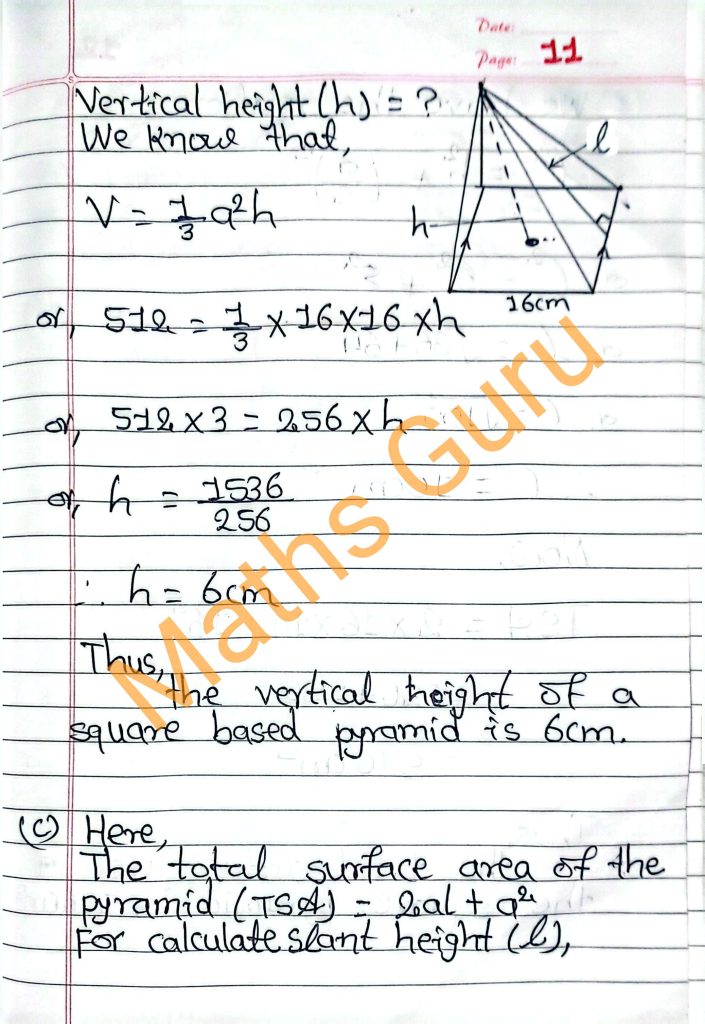 Date:
Page: 11
Vertical height (h) = ?
We know that,
l
V = 1/3 a²h
h
16cm
or, 512 = 1/3 × 16 × 16 × h
or, 512 × 3 = 256 × h
or, h = 1536/256
∴ h = 6cm
Thus,
the vertical height of a
square based pyramid is 6cm.
(c) Here,
The total surface area of the
pyramid (TSA) = 2al + a²
For calculate slant height (l),
Maths Guru